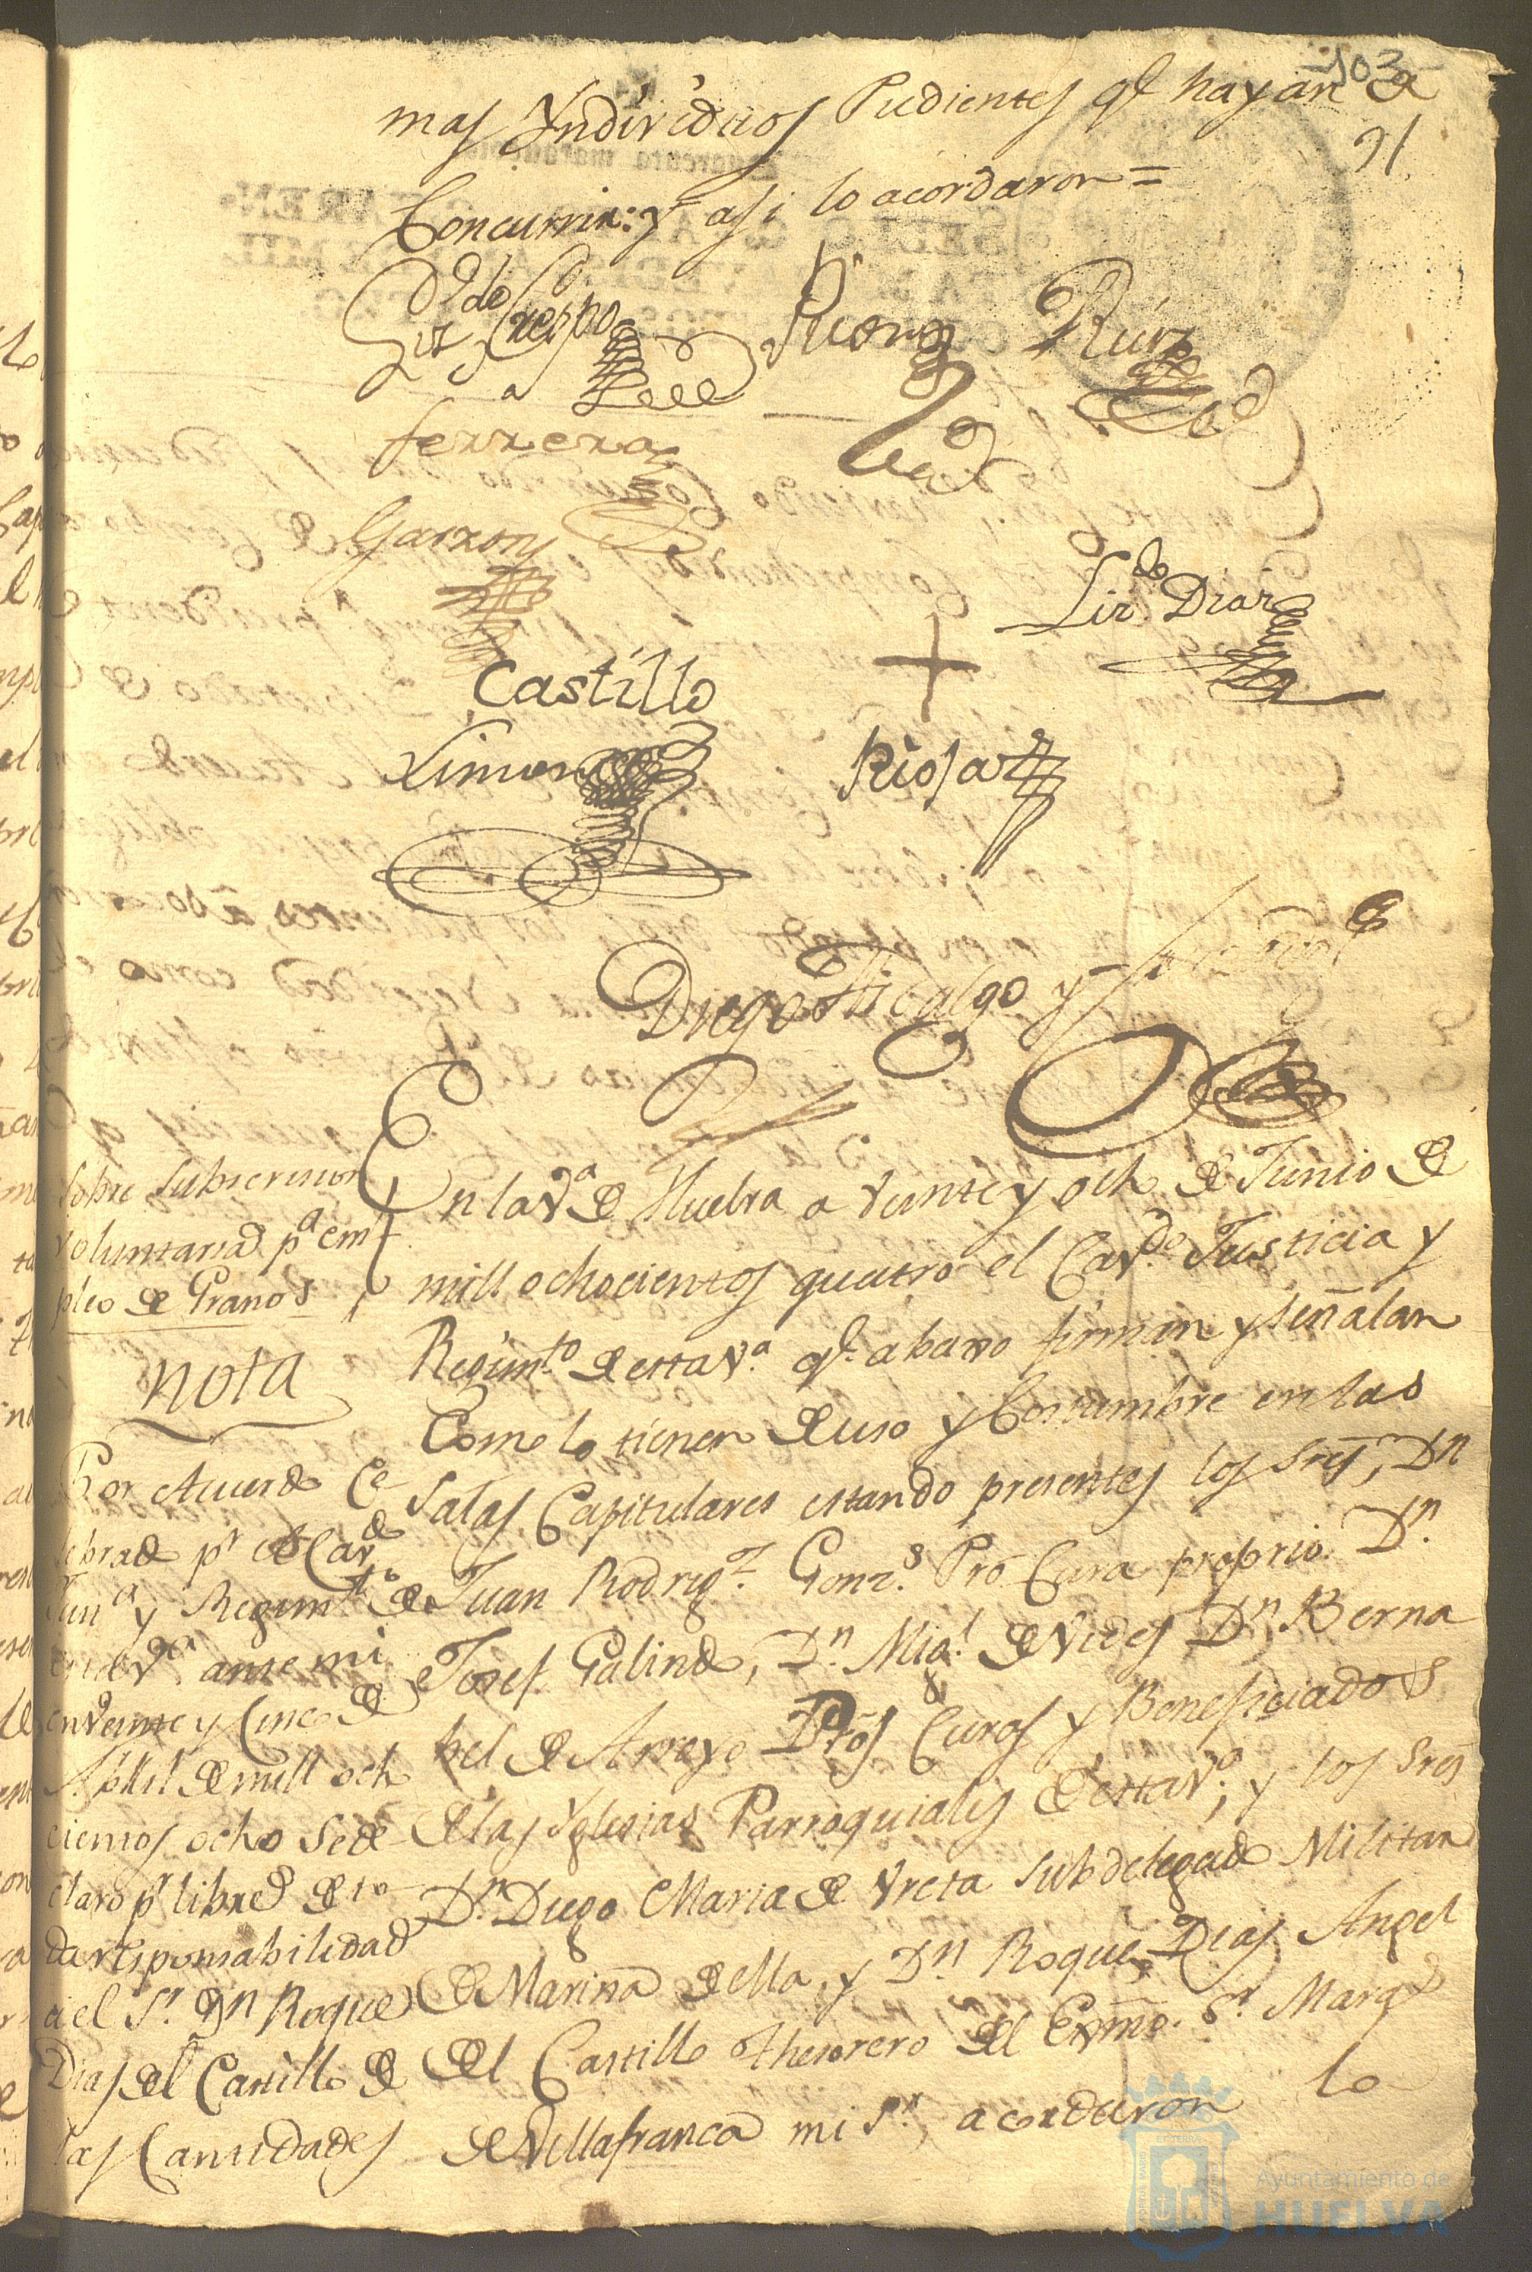 103
91
mas Yndividuos Pudientes qe. hayan de
Concurrir: y asi lo acordaron =
Lizdo. Crespo
Rioro
Ruiz
Ferrera
Garzon
Lizdo. Diaz
Castillo
+
Limon
Riosa
Diego Hidalgo y
Sobre Subscrision
voluntaria pa. em
pleo de Granos
En la Va. de Huelva a veinte y ocho de Junio de
mill ochocientos quatro el Cavdo. Justicia y
Regimto. de esta Va. qe. abaxo firman y señalan
Como lo tienen de uso y Costumbre en las
Salas Capitulares estando presentes los Sres., Dn.
Juan Rodrigz. Gonzs. Pro Cura proprio Dn.
Josef Galindo, Dn. Migl. de Vides Dn. Berna
bel de Arroyo Pros Curas y Beneficiados
de las Yglesias Parroquiales de esta Va.; y los Sres
Dn. Diego Maria de Vreta Subdelegado Militar
de Marina de ella, y Dn. Roque Dias Angel
del Castillo Thesorero del Exmo. Sr. Marqs
de Villafranca mi Sr., acordaron lo
Nota
Por Acuerdo Ce
lebrado pr. el Cavdo
Justa. y Regimto. de
esta Va. ante mi
en veinte y Cinco de
Abril de mill ocho
cientos ocho se de
claro pr. libre de to
da responsabilidad
a el Sr. Dn. Roque
Dias del Castillo de
las Cantidades
Ayuntamiento de
HUELVA